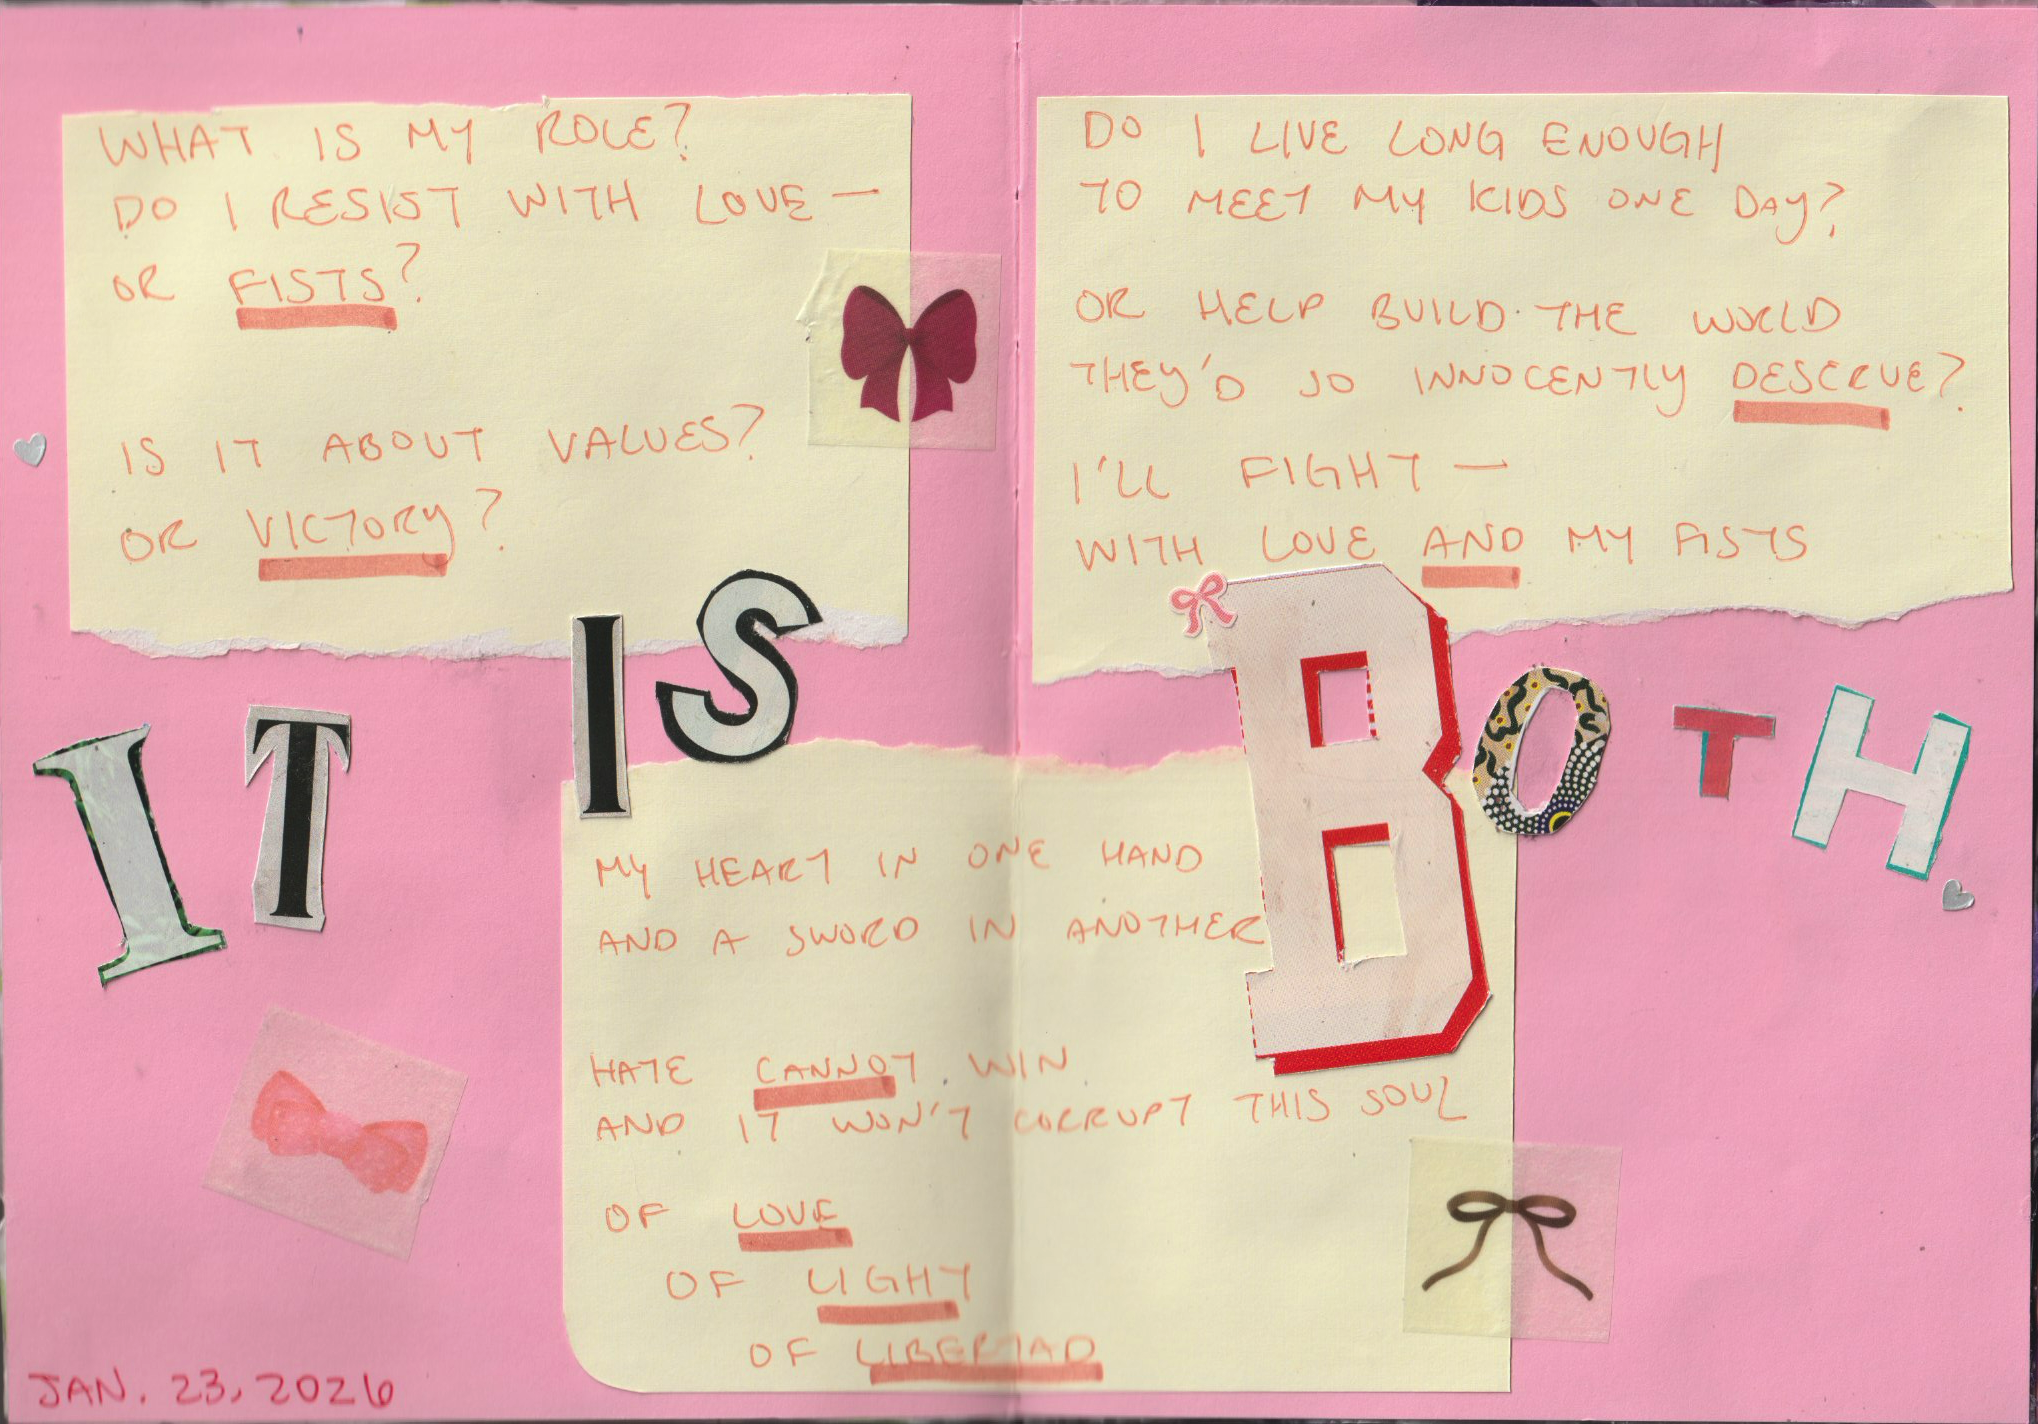 WHAT IS MY ROLE?
DO I RESIST WITH LOVE —
OR FISTS?
IS IT ABOUT VALUES?
OR VICTORY?
DO I LIVE LONG ENOUGH
TO MEET MY KIDS ONE DAY?
OR HELP BUILD THE WORLD
THEY'D SO INNOCENTLY DESERVE?
I'LL FIGHT —
WITH LOVE AND MY FISTS
IT IS BOTH
MY HEART IN ONE HAND
AND A SWORD IN ANOTHER
HATE CANNOT WIN
AND IT WON'T CORRUPT THIS SOUL
OF LOVE
OF LIGHT
OF LIBERTAD
JAN. 23, 2026